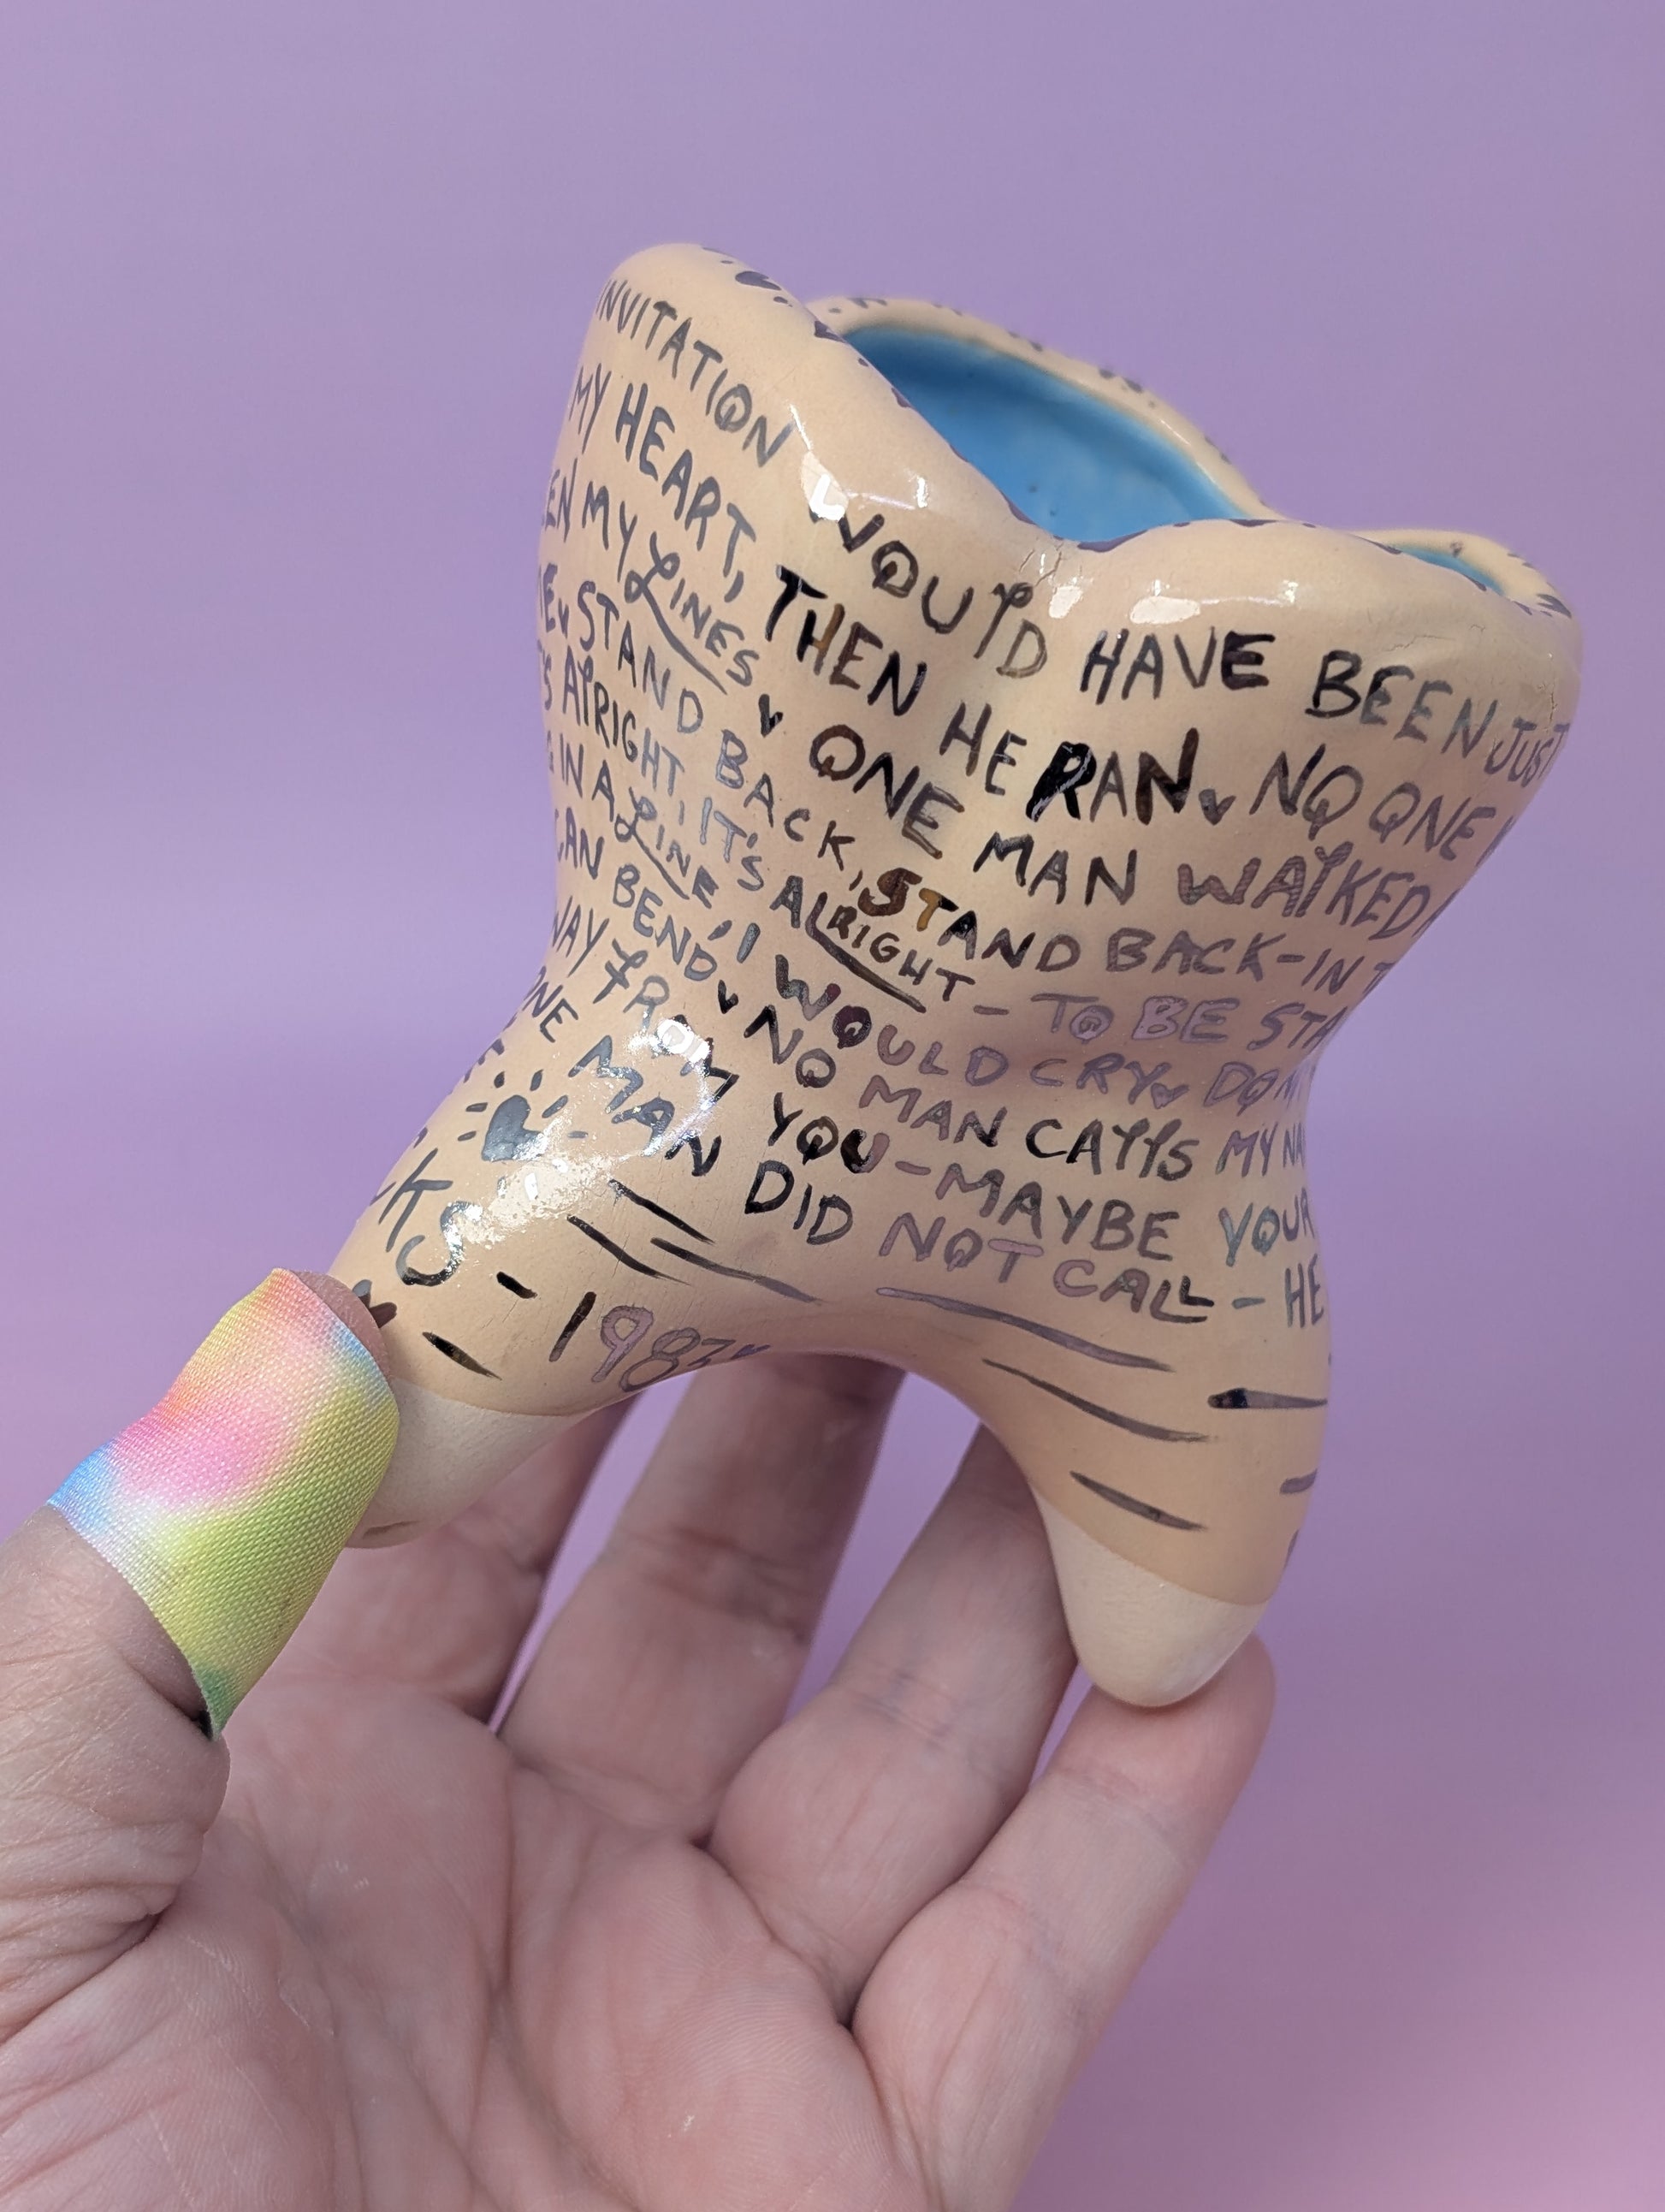 INVITATION WOULD HAVE BEEN JUST
MY HEART, THEN HE RAN NO ONE
MY LINES ONE MAN WALKED
STAND BACK, STAND BACK-IN
ALRIGHT, IT'S ALRIGHT - TO BE STA
IN A LINE, I WOULD CRY DON'T
CAN BEND NO MAN CALLS MY NA
WAY FROM YOU-MAYBE YOUR
ONE MAN DID NOT CALL - HE
CKS - 1983